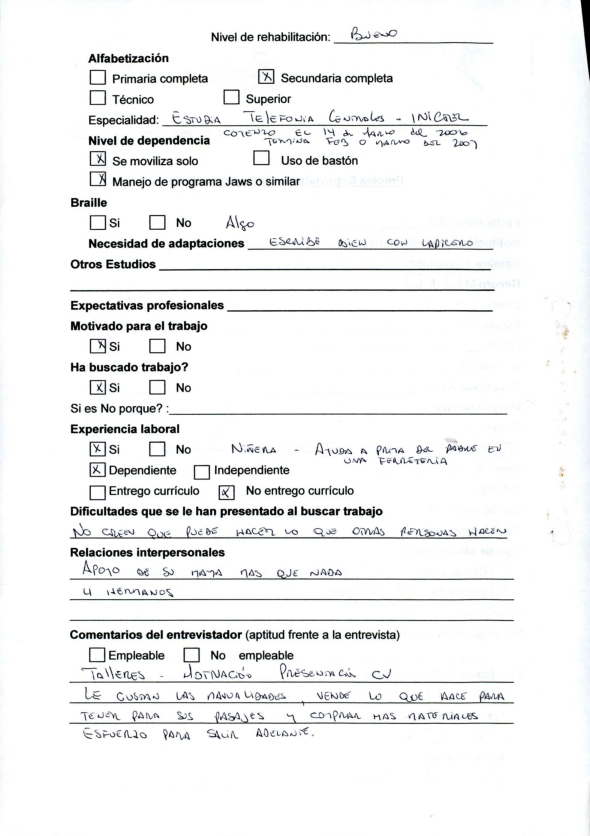 Nivel de rehabilitación: BUENO
Alfabetización
☐ Primaria completa ☒ Secundaria completa
☐ Técnico ☐ Superior
Especialidad: ESTUDIA TELEFONIA CENTRALES - INICTEL
COMENZO EL 14 de MARZO DEL 2006
Nivel de dependencia TERMINA FEB O MARZO DEL 2007
☒ Se moviliza solo ☐ Uso de bastón
☒ Manejo de programa Jaws o similar
Braille
☐ Si ☐ No Algo
Necesidad de adaptaciones ESCRIBE BIEN CON LAPICERO
Otros Estudios
Expectativas profesionales
Motivado para el trabajo
☒ Si ☐ No
Ha buscado trabajo?
☒ Si ☐ No
Si es No porque? :
Experiencia laboral
☒ Si ☐ No NIÑERA - AYUDA A PRIMA DEL PADRE EN
UNA FERRETERIA
☒ Dependiente ☐ Independiente
☐ Entrego currículo ☒ No entrego currículo
Dificultades que se le han presentado al buscar trabajo
NO CREEN QUE PUEDE HACER LO QUE OTRAS PERSONAS HACEN
Relaciones interpersonales
APOYO DE SU MAMA MAS QUE NADA
4 HERMANOS
Comentarios del entrevistador (aptitud frente a la entrevista)
☐ Empleable ☐ No empleable
TALLERES - MOTIVACIÓN PRESENTACIÓN CV
LE GUSTAN LAS MANUALIDADES, VENDE LO QUE HACE PARA
TENER PARA SUS PASAJES Y COMPRAR MAS MATERIALES
ESFUERZO PARA SALIR ADELANTE.